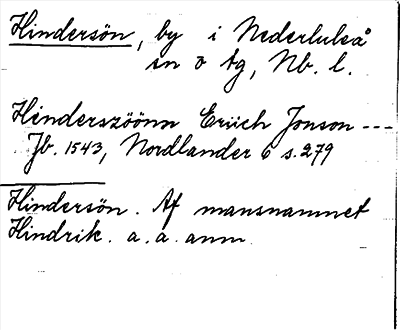 Hindersön, by i Nederluleå
sn o tg, Nb. l.
Hinderszöönn Eriich Jonson ---
Jb. 1543, Nordlander 6 s. 279
Hindersön. Af mansnamnet
Hindrik. a. a. anm.